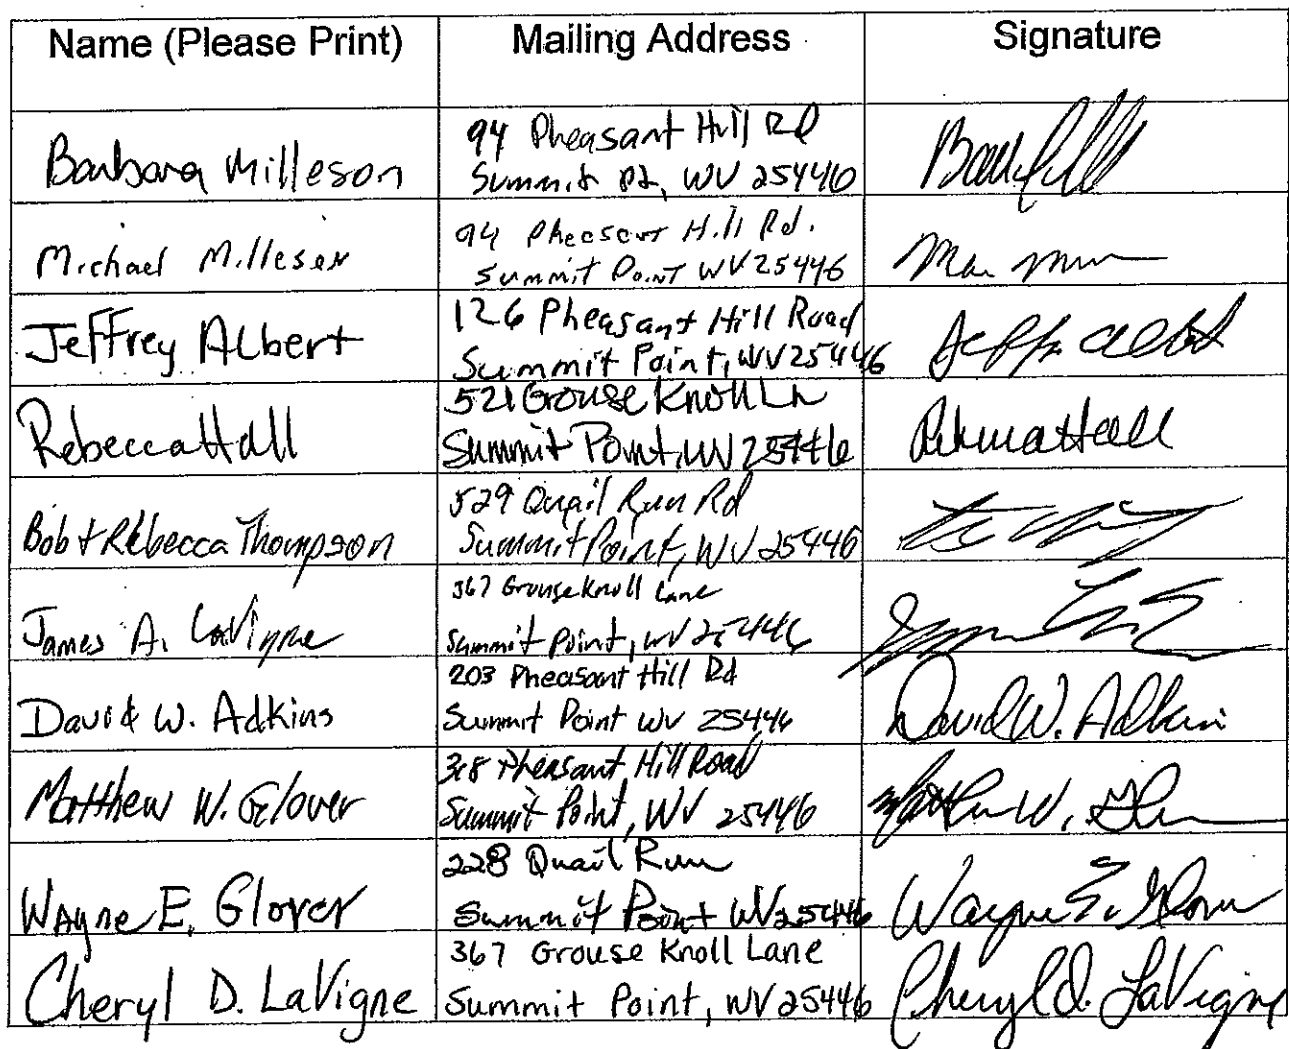 Name (Please Print) Mailing Address Signature
Barbara Milleson
94 Pheasant Hill Rd
Summit Pt, WV 25446
Michael Milleson
94 Pheasant Hill Rd.
Summit Point WV 25446
Jeffrey Albert
126 Pheasant Hill Road
Summit Point, WV 25446
Rebecca Hall
521 Grouse Knoll Ln
Summit Point, WV 25446
Rebecca Hall
Bob & Rebecca Thompson
529 Quail Run Rd
Summit Point, WV 25446
James A. LaVigne
367 Grouse Knoll Lane
Summit Point, WV 25446
David W. Adkins
203 Pheasant Hill Rd
Summit Point WV 25446
David W. Adkins
Matthew W. Glover
Pheasant Hill Road
Summit Point, WV 25446
Matthew W.
Wayne E. Glover
228 Quail Run
Summit Point WV 25446
Wayne E. Glover
Cheryl D. LaVigne
367 Grouse Knoll Lane
Summit Point, WV 25446
Cheryl D. LaVigne